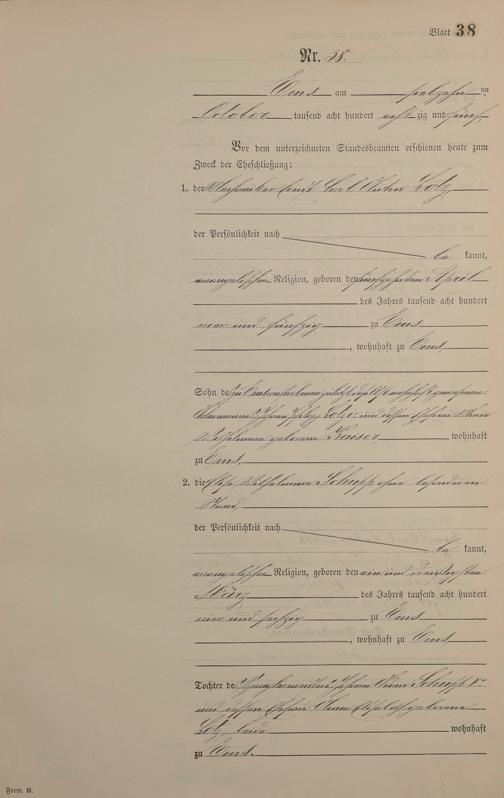 Blatt 38
Nr. 38.
Ems am siebzehnten
October tausend acht hundert achtzig und fünf
Vor dem unterzeichneten Standesbeamten erschienen heute zum
Zweck der Eheschließung:
1. der Ernst Carl Lotz
der Persönlichkeit nach
be kannt,
evangelischer Religion, geboren den fünfzehnten April
des Jahres tausend acht hundert
vier und fünfzig zu Ems
, wohnhaft zu Ems
Sohn des zu Ems verstorbenen zuletzt daselbst wohnhaft gewesenen
Lotz und dessen Ehefrau
Wilhelmina geborene Kaiser wohnhaft
zu Ems
2. die Wilhelmina Schupp ohne besonderen
Stand
der Persönlichkeit nach
be kannt,
evangelischer Religion, geboren den ein und dreißigsten
März des Jahres tausend acht hundert
vier und sechzig zu Ems
, wohnhaft zu Ems
Tochter des Schupp
und dessen Ehefrau geborene
Lotz, beide wohnhaft
zu Ems.
Form. B.